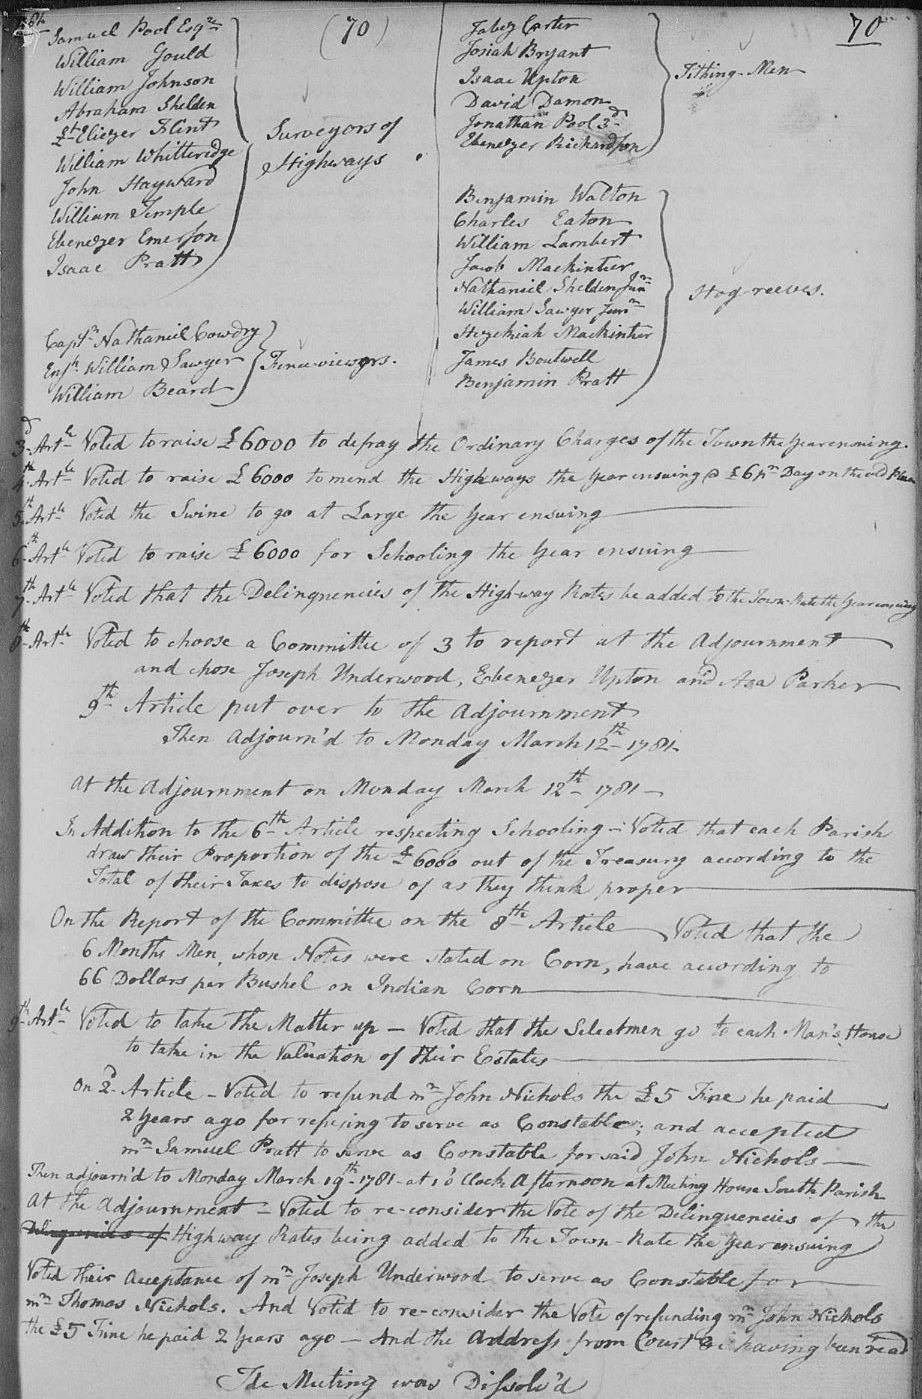 (70)
70
Samuel Pool Esqr
William Gould
William Johnson
Abraham Shelden
Lt Eliezer Flint
William Whitteridge
John Hayward
William Temple
Ebenezer Emerson
Isaac Pratt
Surveyors of
Highways
Captn Nathaniel Cowdry
Ensn William Sawyer
William Beard
Fence viewers.
Jabez Carter
Josiah Bryant
Isaac Upton
David Damon
Jonathan Pool 3d
Ebenezer Richardson
Tithing-Men
Benjamin Walton
Charles Eaton
William Lambert
Jacob Mackintier
Nathaniel Shelden Junr
William Sawyer Junr
Hezekiah Mackintier
James Boutwell
Benjamin Pratt
Hog-reeves.
3d Artle Voted to raise £6000 to defray the Ordinary Charges of the Town the Year ensuing.
4th Artle Voted to raise £6000 to mend the Highways the Year ensuing @ £6 pr Day on the old Plan
5th Artle Voted the Swine to go at Large the Year ensuing
6th Artle Voted to raise £6000 for Schooling the Year ensuing
7th Artle Voted that the Delinquencies of the Highway Rates be added to the Town-Rate the Year ensuing
8th Artle Voted to choose a Committee of 3 to report at the Adjournment
and chose Joseph Underwood, Ebenezer Upton and Asa Parker
9th Article put over to the Adjournment
Then Adjourn'd to Monday March 12th 1781.
At the Adjournment on Monday March 12th 1781
In Addition to the 6th Article respecting Schooling - Voted that each Parish
draw their Proportion of the £6000 out of the Treasury according to the
Total of their Taxes to dispose of as they think proper
On the Report of the Committee on the 8th Article Voted that the
6 Months Men, whose Notes were stated on Corn, have according to
66 Dollars per Bushel on Indian Corn
9th Artle Voted to take the Matter up - Voted that the Selectmen go to each Man's House
to take in the Valuation of their Estates
On 2d Article - Voted to refund mr John Nichols the £5 Fine he paid
2 Years ago for refusing to serve as Constable; and accepted
mr Samuel Pratt to serve as Constable for said John Nichols
Then adjourn'd to Monday March 19th 1781 at 1 o'Clock Afternoon at Meeting House South Parish
At the Adjournment - Voted to re-consider the Vote of the Delinquencies of the
Delinquencies of Highway Rates being added to the Town-Rate the Year ensuing
Voted their Acceptance of mr Joseph Underwood to serve as Constable for
mr Thomas Nichols. And Voted to re-consider the Vote of refunding mr John Nichols
the £5 Fine he paid 2 Years ago - And the Address from Court &c having been read
The Meeting was Dissolv'd